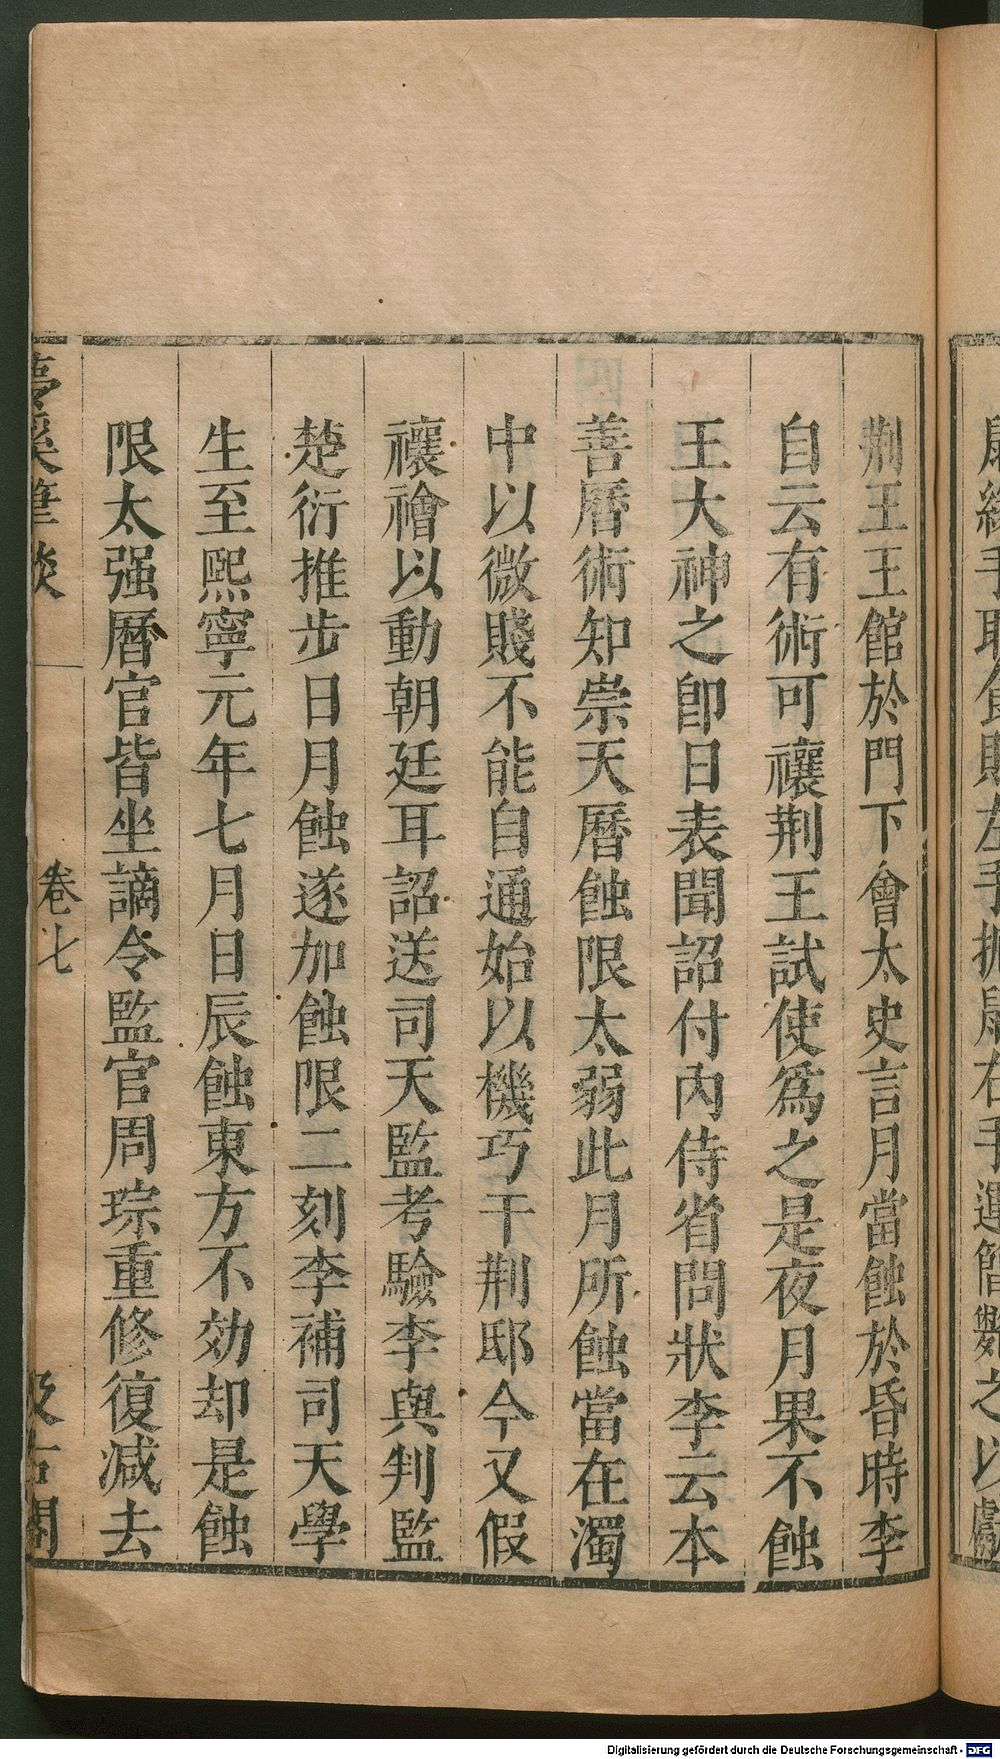 荆王王館於門下會太史言月當蝕於昏時李
自云有術可禳荆王試使爲之是夜月果不蝕
王大神之卽日表聞詔付內侍省問狀李云本
善曆術知崇天曆蝕限太弱此月所蝕當在濁
中以微賤不能自通始以機巧干荆邸今又假
禳禬以動朝廷耳詔送司天監考驗李與判監
楚衍推步日月蝕遂加蝕限二刻李補司天學
生至熙寧元年七月日辰蝕東方不効却是蝕
限太强曆官皆坐謫令監官周琮重修復減去
夢溪筆談
卷七
汲古閣
Digitalisierung gefördert durch die Deutsche Forschungsgemeinschaft - DFG